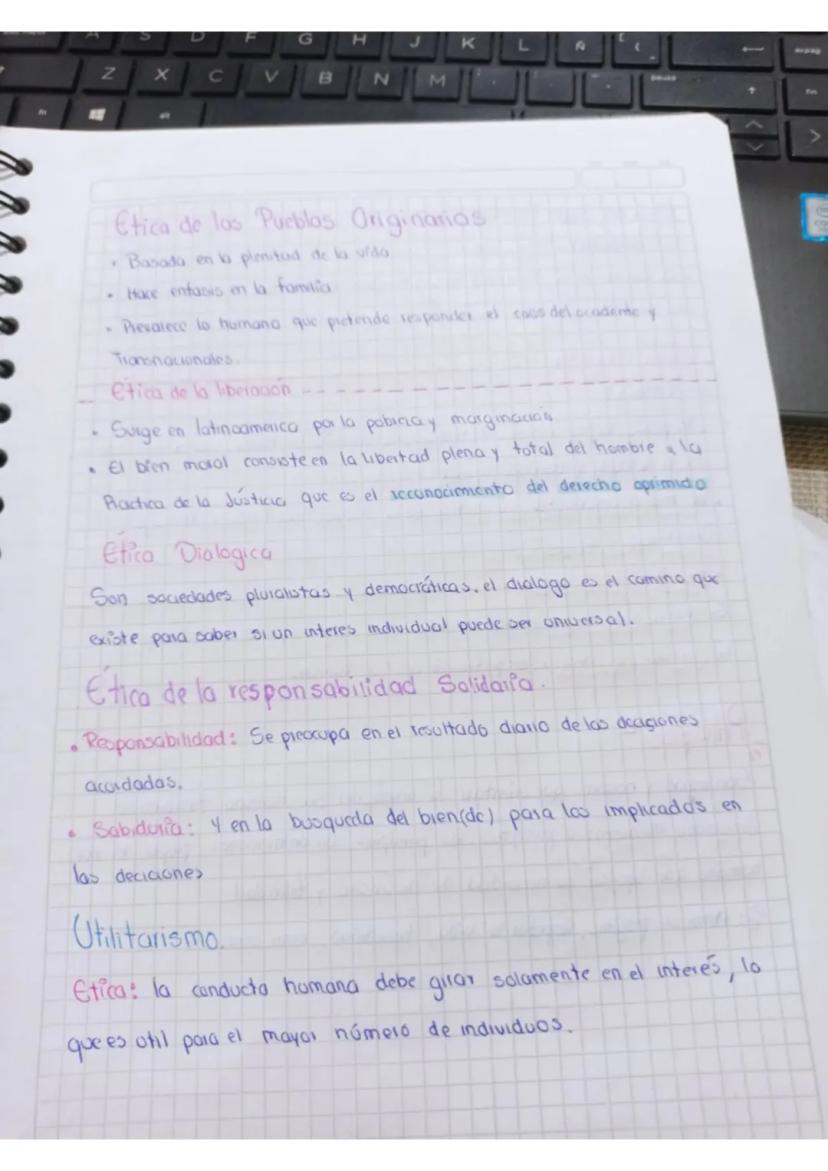 A S D F G H J K L Ñ
Z X C V B N M
Etica de los Pueblos Originarios
• Basada en la plenitud de la vida
• Hace enfasis en la familia
• Prevalece lo humano que pretende responder el caos del occidente y
Transnacionales.
Etica de la liberación
• Surge en latinoamerica por la pobreza y marginación
• El bien moral consiste en la libertad plena y total del hombre y la
Practica de la Jústicia, que es el reconocimiento del derecho oprimido
Etica Dialogica
Son sociedades pluralistas y democráticas, el dialogo es el camino que
existe para saber si un interes individual puede ser universal.
Etica de la responsabilidad Solidaria.
• Responsabilidad: Se preocupa en el resultado diario de las
acordadas.
• Sabiduria: Y en la busqueda del bien(de) para los implicados en
las deciciones
Utilitarismo.
Etica: la conducta humana debe girar solamente en el interés, lo
que es util para el mayor número de individuos.